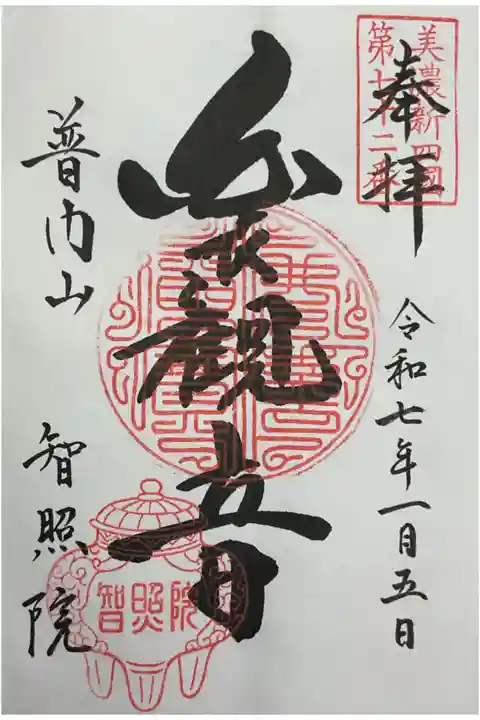 美濃新四國
第七十二番
奉拝
令和七年一月五日
聖観音
普門山
智照院
智照院